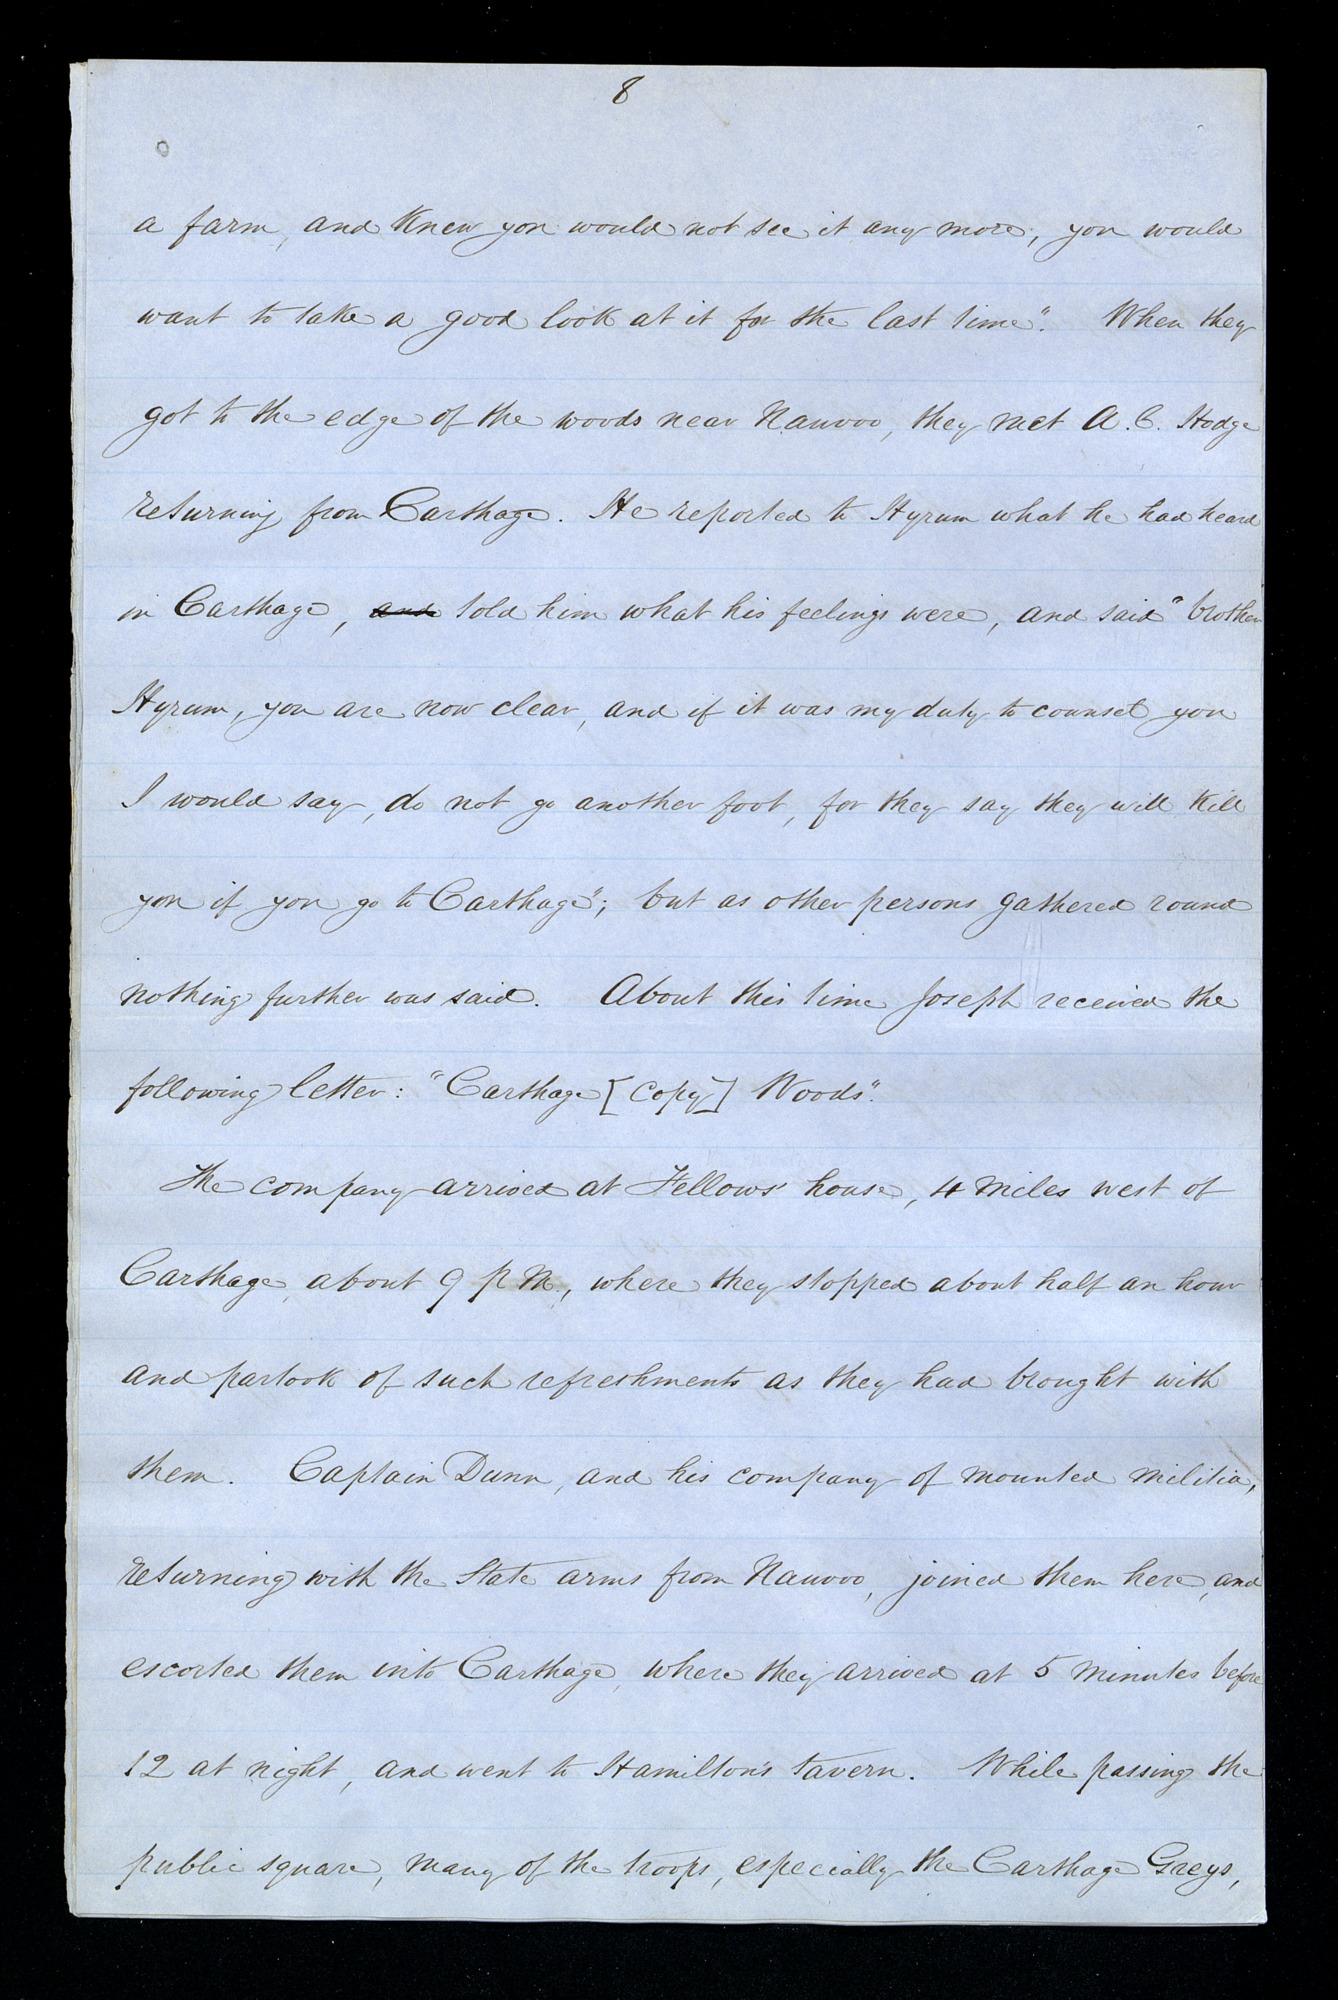 8
a farm, and knew you would not see it any more, you would
want to take a good look at it for the last time". When they
got to the edge of the woods near Nauvoo, they met A. C. Hodge
returning from Carthage. He reported to Hyrum what he had heard
in Carthage, and told him what his feelings were, and said "brother
Hyrum, you are now clear, and if it was my duty to counsel you
I would say, do not go another foot, for they say they will kill
you if you go to Carthage"; but as other persons gathered round
nothing further was said. About this time Joseph received the
following letter: "Carthage [copy] Woods".
The company arrived at Fellows' house, 4 miles west of
Carthage, about 9 P M., where they stopped about half an hour
and partook of such refreshments as they had brought with
them. Captain Dunn, and his company of mounted militia,
returning with the State arms from Nauvoo, joined them here, and
escorted them into Carthage, where they arrived at 5 minutes before
12 at night, and went to Hamilton's tavern. While passing the
public square, many of the troops, especially the Carthage Greys,